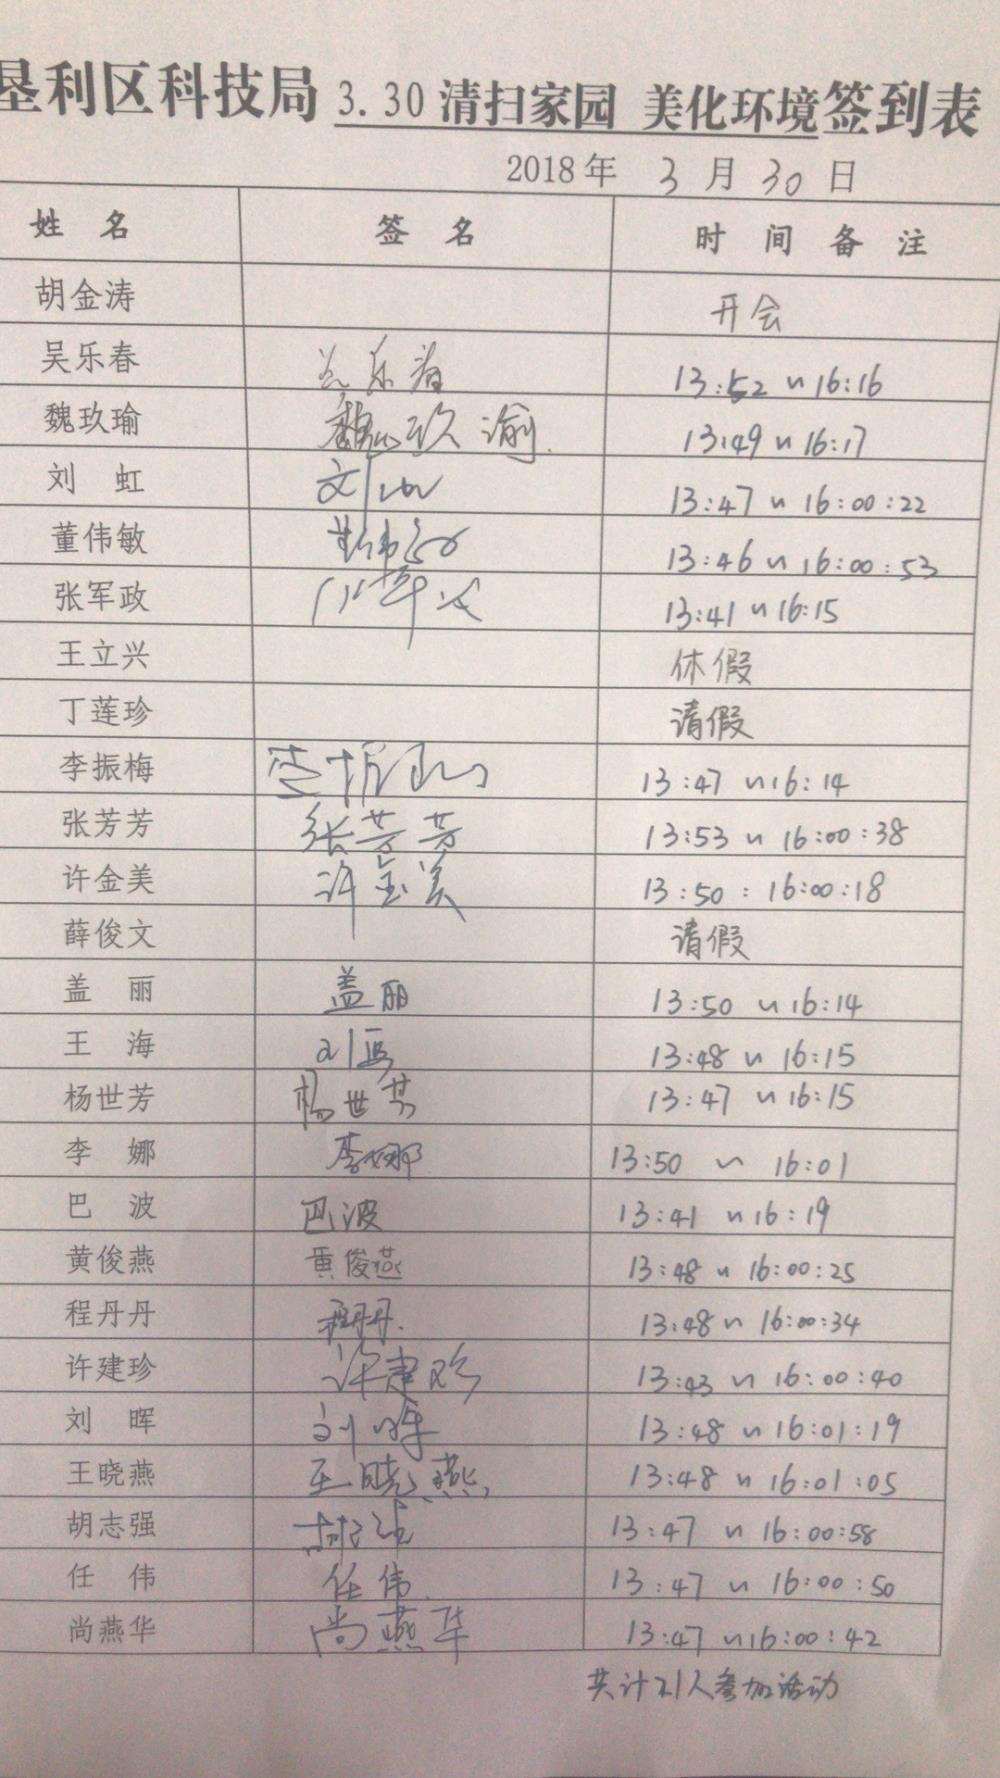 垦利区科技局 3.30 清扫家园 美化环境签到表
2018年 3月30日
姓 名 签 名 时 间 备 注
胡金涛 开会
吴乐春 吴乐春 13:52 ~ 16:16
魏玖瑜 魏玖瑜 13:49 ~ 16:17
刘 虹 刘虹 13:47 ~ 16:00:22
董伟敏 董伟敏 13:46 ~ 16:00:53
张军政 张军政 13:41 ~ 16:15
王立兴 休假
丁莲珍 请假
李振梅 李振梅 13:47 ~ 16:14
张芳芳 张芳芳 13:53 ~ 16:00:38
许金美 许金美 13:50 : 16:00:18
薛俊文 请假
盖 丽 盖丽 13:50 ~ 16:14
王 海 13:48 ~ 16:15
杨世芳 杨世芳 13:47 ~ 16:15
李 娜 李娜 13:50 ~ 16:01
巴 波 巴波 13:41 ~ 16:19
黄俊燕 黄俊燕 13:48 ~ 16:00:25
程丹丹 程丹丹 13:48 ~ 16:00:34
许建珍 许建珍 13:43 ~ 16:00:40
刘 晖 刘晖 13:48 ~ 16:01:19
王晓燕 王晓燕 13:48 ~ 16:01:05
胡志强 胡志强 13:47 ~ 16:00:58
任 伟 任伟 13:47 ~ 16:00:50
尚燕华 尚燕华 13:47 ~ 16:00:42
共计21人参加活动